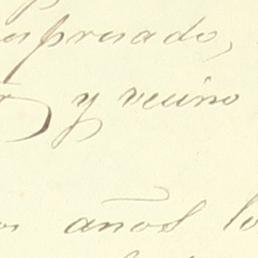 espresado,
y vecino
años lo